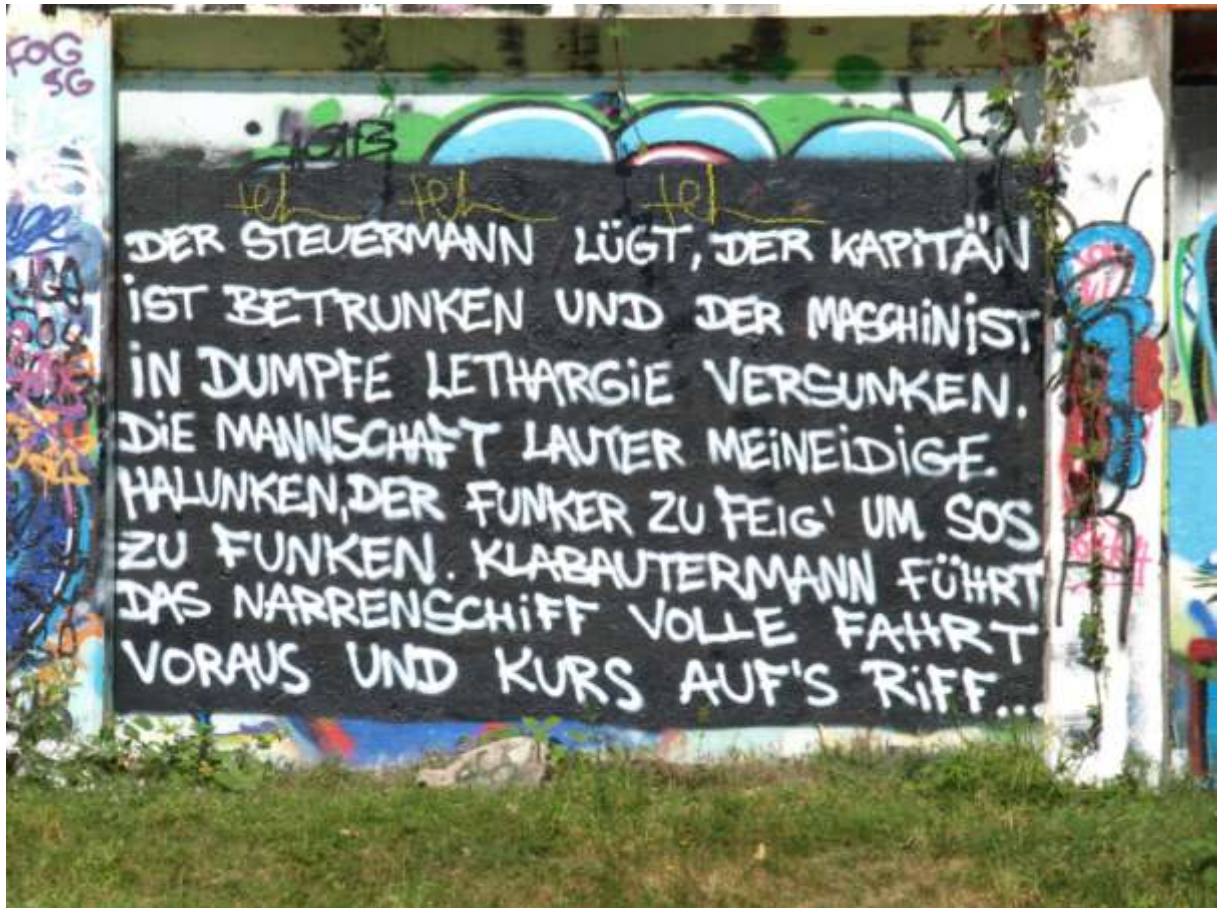 FOG
SG
teh teh teh
DER STEUERMANN LÜGT, DER KAPITÄN
IST BETRUNKEN UND DER MASCHINIST
IN DUMPFE LETHARGIE VERSUNKEN.
DIE MANNSCHAFT LAUTER MEINEIDIGE
HALUNKEN, DER FUNKER ZU FEIG' UM SOS
ZU FUNKEN. KLABAUTERMANN FÜHRT
DAS NARRENSCHIFF VOLLE FAHRT
VORAUS UND KURS AUF'S RIFF...